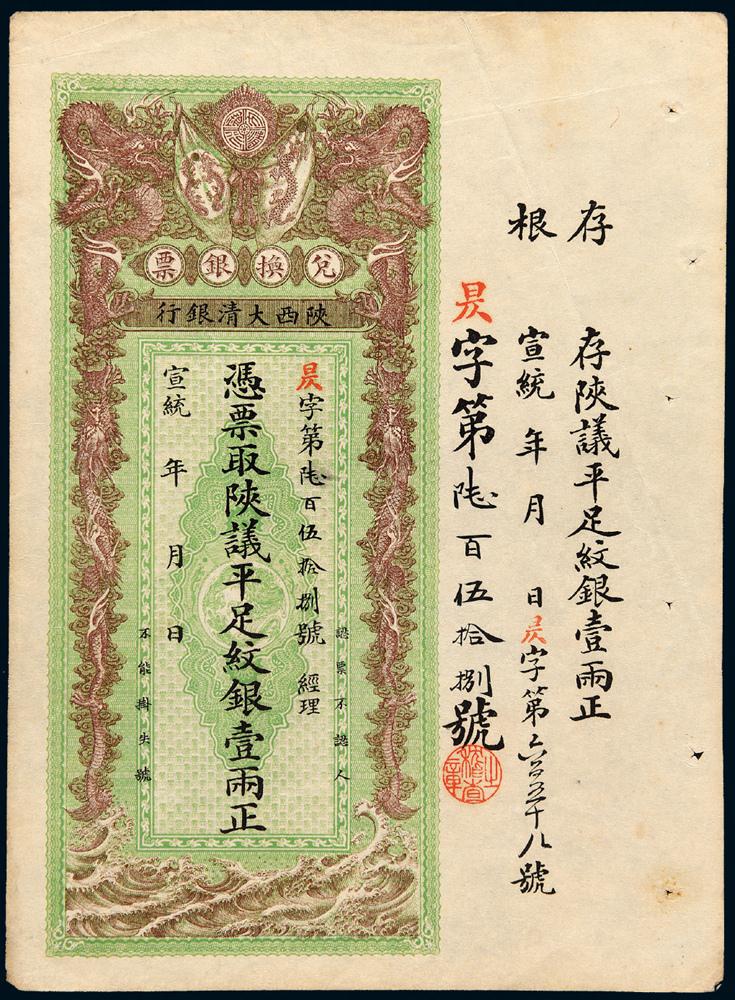 存根
存陝議平足紋銀壹兩正
宣統 年 月 日昃字第六百五十八號
昃字第陸百伍拾捌號
兌換銀票
陝西大清銀行
認票不認人
昃字第陸百伍拾捌號 經理
憑票取陝議平足紋銀壹兩正
宣統 年 月 日
不能掛失號